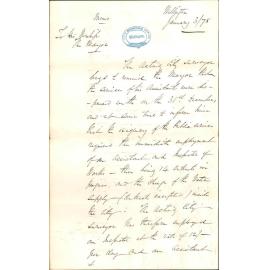 Memo
Wellington
January 3/78
To His Worship
The Mayor
The Acting City Surveyor
begs to remind the Mayor that
the services of his Assistant were
on the 31st December,
and at same time to inform him
that the exigency of the Public Service
requires the immediate employment
of an Assistant and Inspector of
Works — there being 14 contracts in
progress and the charge of the Water
Supply — (contracts excepted) inside
the City. The Acting City
Surveyor has therefore employed
an Inspector at the rate of 12/-
per day and an Assistant